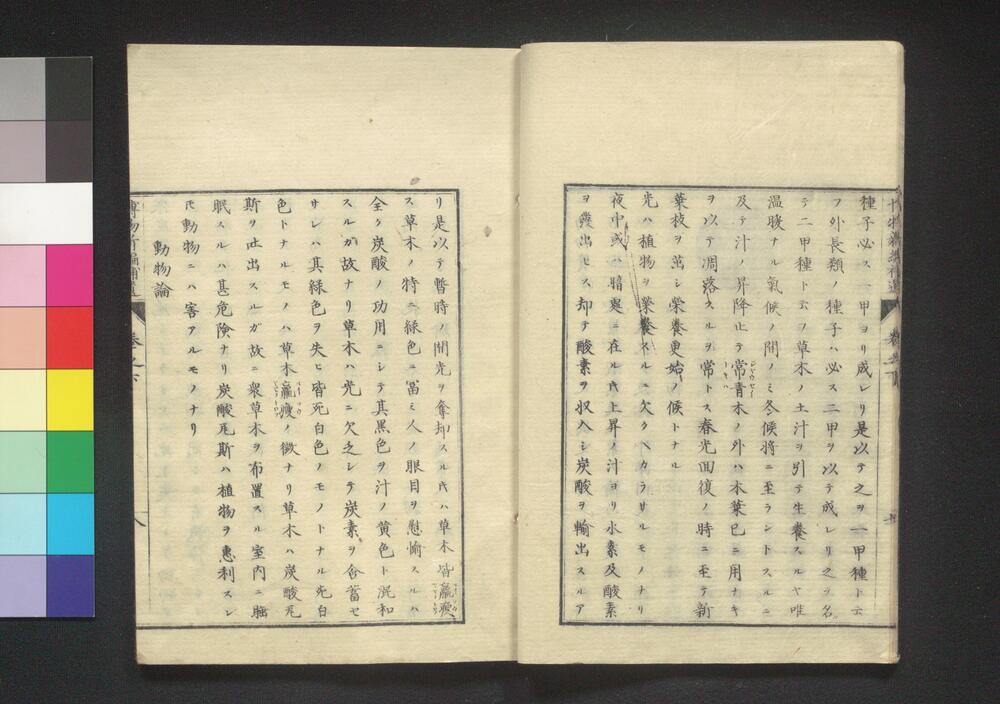 種子必ス一甲ヨリ成レリ是以テ之ヲ一甲種ト云
フ外長類ノ種子ハ必ス二甲ヲ以テ成レリ之ヲ名
テ二甲種ト云フ草木ノ土汁ヲ引テ生養スルヤ唯
温暖ナル氣候ノ間ノミ冬候將ニ至ラントスルニ
及テ汁ノ昇降止テ常青木ノ外ハ木葉已ニ用ナキ
ヲ以テ凋落スルヲ常トス春光囬復ノ時ニ至テ新
葉枝ヲ萌シ栄養更始ノ候トナル
光ハ植物ヲ栄養スルニ欠クヘカラサルモノナリ
夜中或ハ暗處ニ在ル𪜈上昇ノ汁ヨリ水素及酸素
ヲ發出セス却テ酸素ヲ収入シ炭酸ヲ輸出スルア
リ是以テ暫時ノ間光ヲ奪却スル𪜈ハ草木皆羸痩
ス草木ノ特ニ緑色ニ冨ミ人ノ眼目ヲ慰愉スルハ
全ク炭酸ノ功用ニシテ其黒色ヲ汁ノ黄色ト混和
スルガ故ナリ草木ハ光ニ欠乏シテ炭素ヲ含蓄セ
サレハ其緑色ヲ失ヒ皆死白色ノモノトナル死白
色トナルモノハ草木羸痩ノ徴ナリ草木ハ炭酸瓦
斯ヲ吐出スルガ故ニ衆草木ヲ布置スル室内ニ臨
眠スルハ甚危険ナリ炭酸瓦斯ハ植物ヲ惠利スレ
𪜈動物ニハ害アルモノナリ
動物論
博物新編補遺
巻之下
八